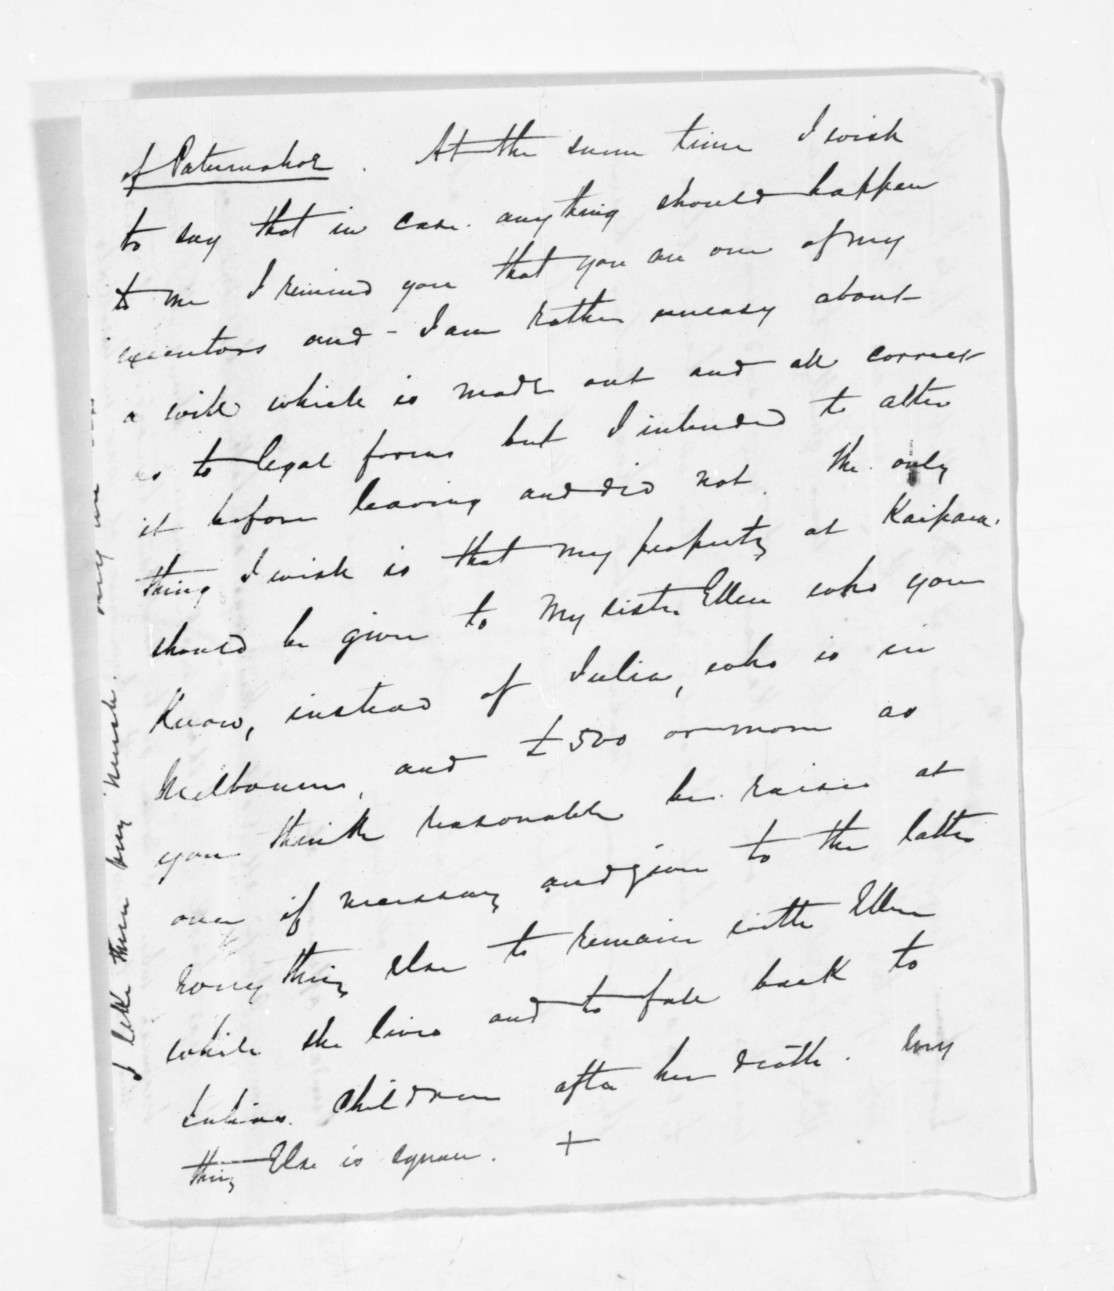 of Patumahoe. At the same time I wish
to say that in case anything should happen
to me I remind you that you are one of my
executors and - I am rather uneasy about
a will which is made out and all correct
as to legal forms but I intended to alter
it before leaving and did not. The only
thing I wish is that my property at Kaipara.
should be given to my sister Ellen who you
know, instead of Julia, who is in
Melbourne, and £500 or more as
you think reasonable be raised at
once if necessary and given to the latter
Every thing else to remain with Ellen
while she lives and to fall back to
Julias children after her death. Every
thing Else is square. +
I like them very much. any one